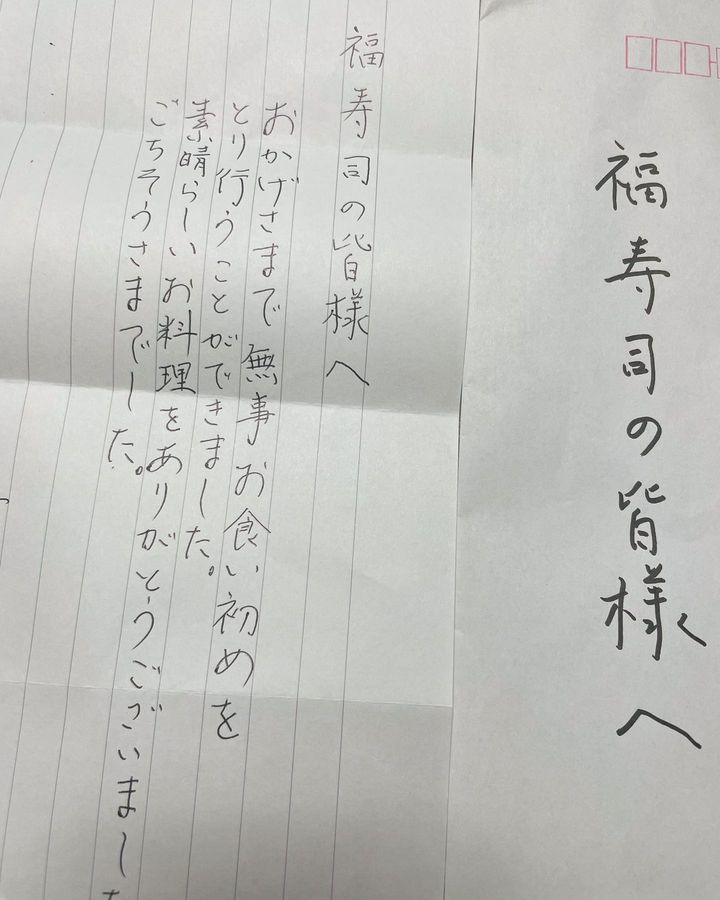 福寿司の皆様へ
福寿司の皆様へ
おかげさまで無事お食い初めを
とり行うことができました。
素晴らしいお料理をありがとうございました
ごちそうさまでした。